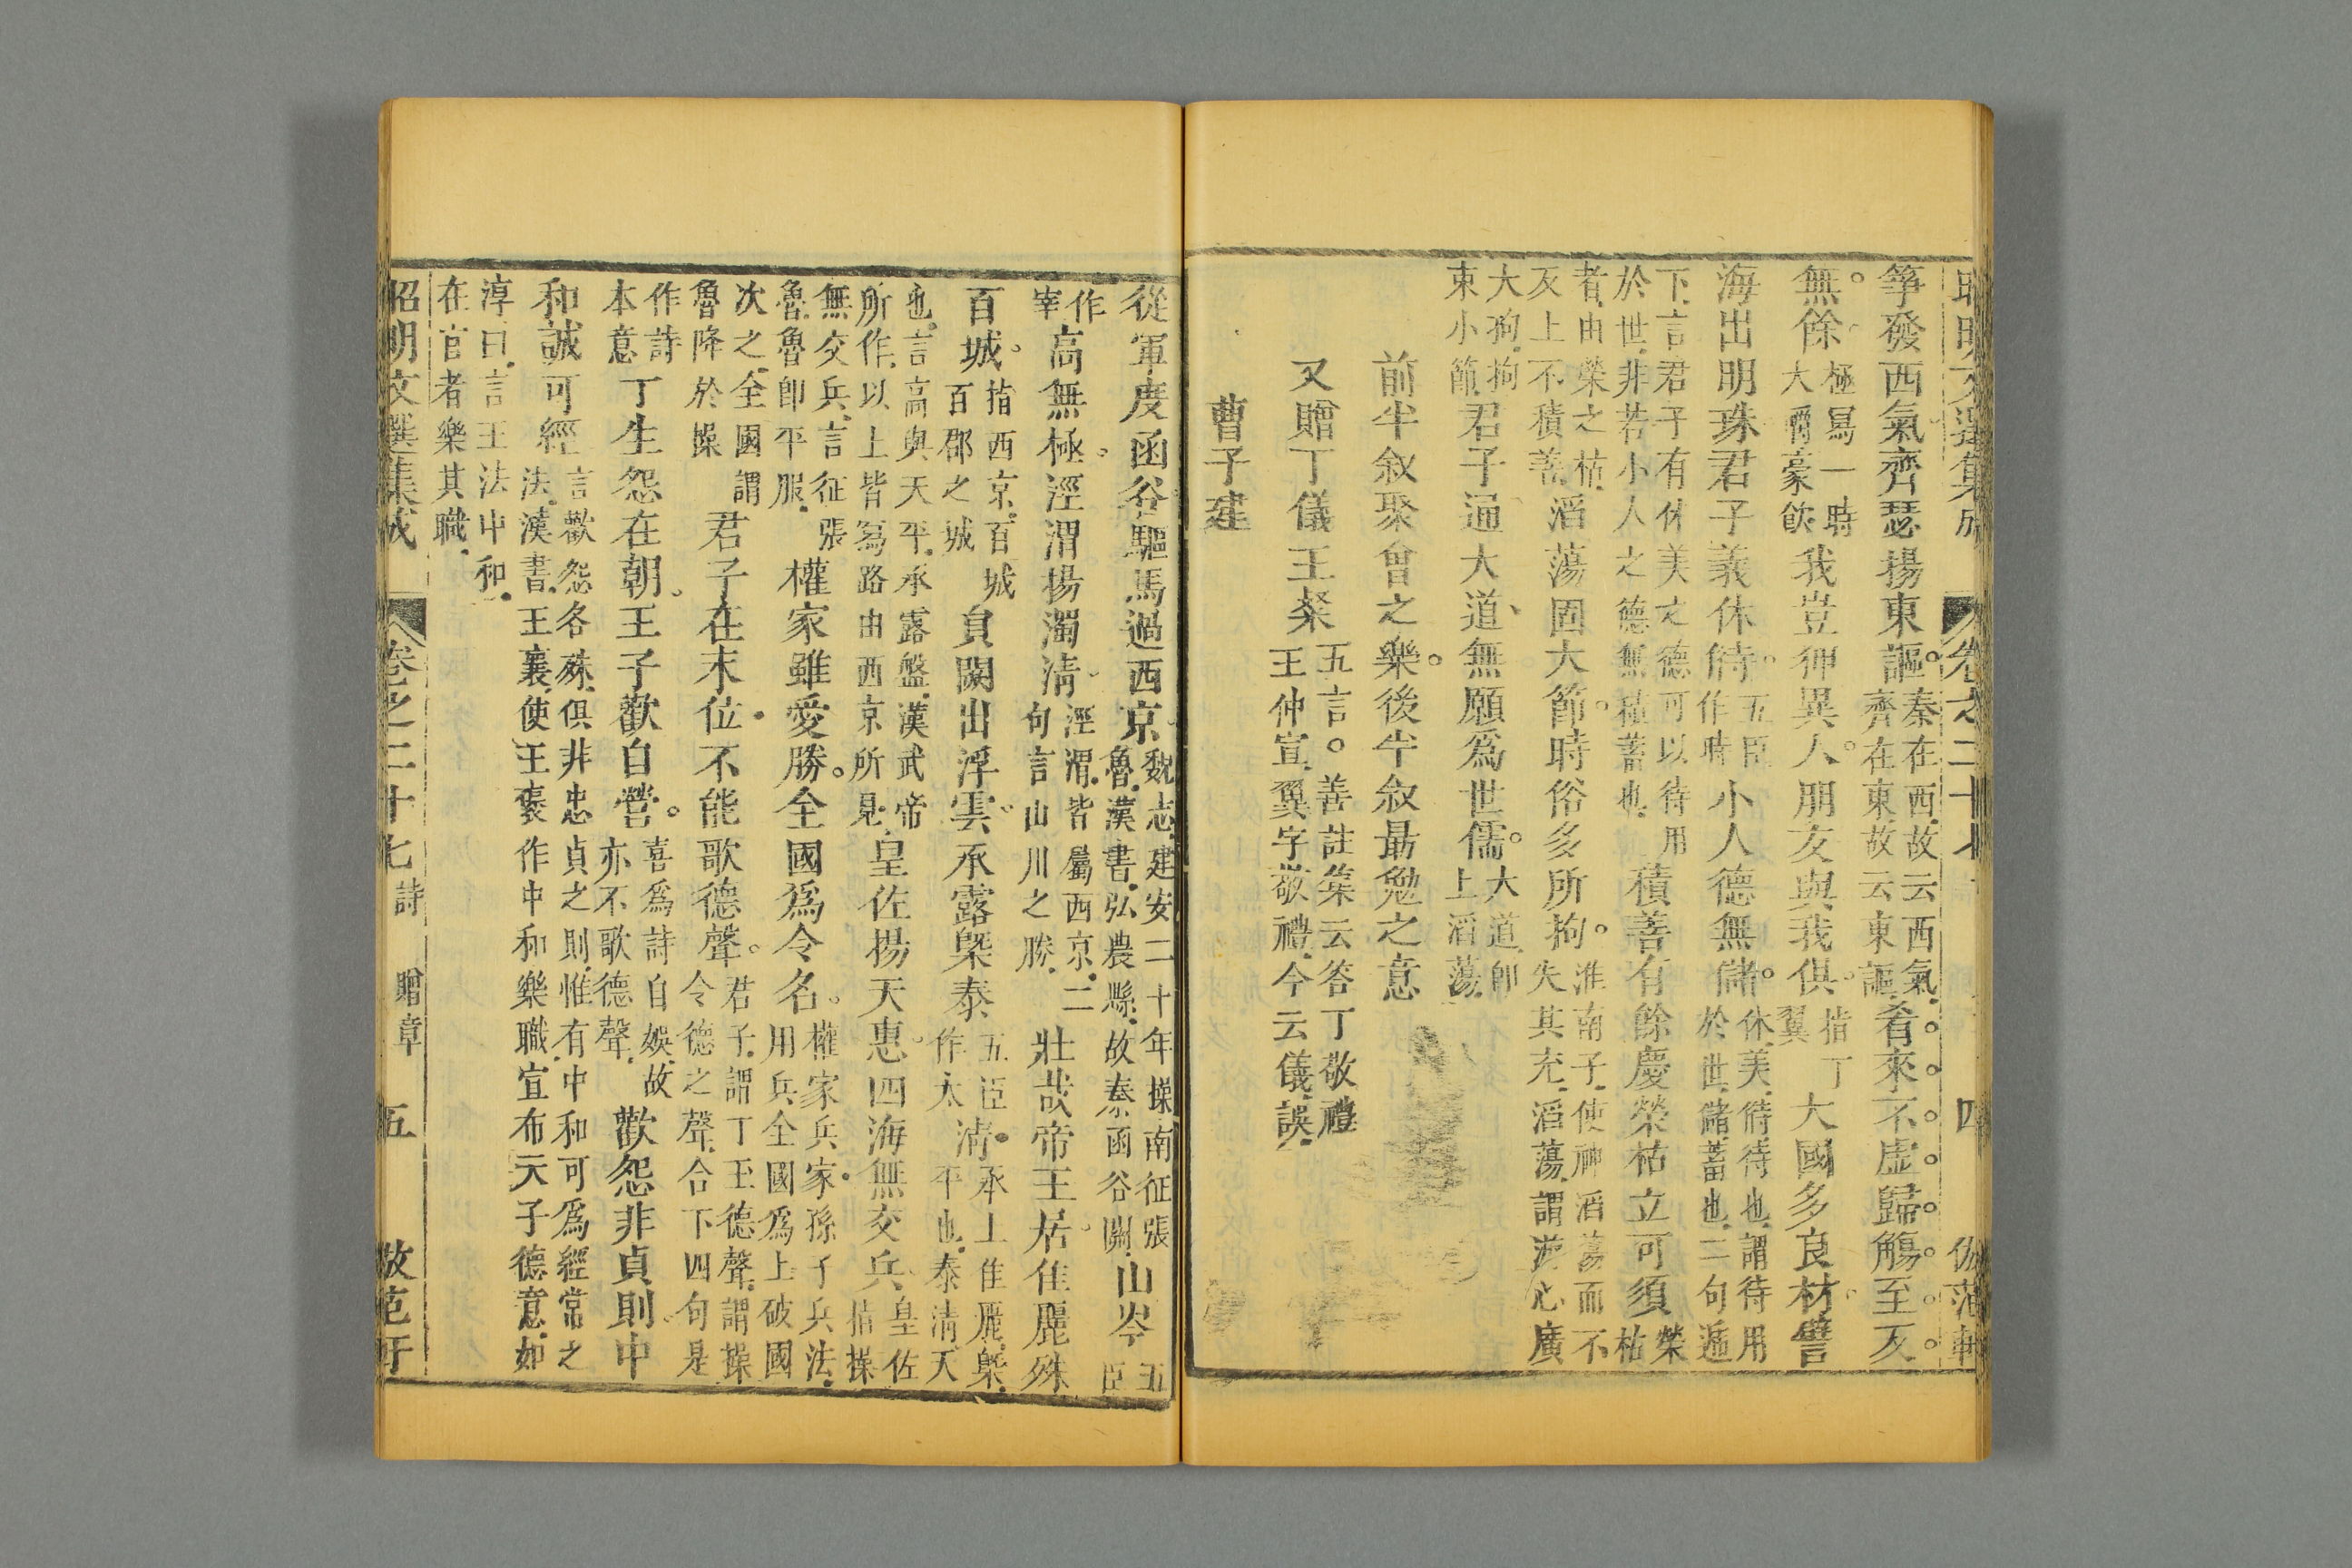 昭明文選集成 卷之二十七 四 倣范軒
箏發西氣齊瑟揚東謳秦在西故云西氣齊在東故云東謳肴來不虛歸觴至反
無餘極寫一時大嚼豪飲我豈狎異人朋友與我俱指丁翼大國多良材譬
海出明珠君子義休偫五臣作時小人德無儲休美偫待也謂待用於世儲蓄也二句遞
下言君子有休美之德可以待用於世非若小人之德無積蓄也積善有餘慶榮枯立可須榮枯
者由榮之枯反上不積善滔蕩固大節時俗多所拘淮南子使神滔蕩而不失其充滔蕩謂遊心廣
大狥拘束小節君子通大道無願爲世儒大道卽上滔蕩
前半叙聚會之樂後半叙勗勉之意
又贈丁儀王粲五言善註集云答丁敬禮王仲宣翼字敬禮今云儀誤
曹子建
從軍度函谷驅馬過西京魏志建安二十年操南征張魯漢書弘農縣故秦函谷關山岑五臣
作宰高無極涇渭揚濁淸涇渭皆屬西京二句言山川之勝壯哉帝王居佳麗殊
百城指西京百城百郡之城員闕出浮雲承露槩泰五臣作太淸承上佳麗槩平也泰淸天
也言高與天平承露盤漢武帝所作以上皆寫路由西京所見皇佐揚天惠四海無交兵皇佐指操
無交兵言征張魯魯卽平服權家雖愛勝全國爲令名權家兵家孫子兵法用兵全國爲上破國
次之全國謂魯降於操君子在末位不能歌德聲君子謂丁王德聲謂操令德之聲合下四句是
作詩本意丁生怨在朝王子歡自營喜爲詩自娛故亦不歌德聲歡怨非貞則中
和誠可經言歡怨各殊俱非忠貞之則惟有中和可爲經常之法漢書王襄使王褒作中和樂職宣布天子德意如
淳曰言王法中和在官者樂其職
昭明文選集成 卷之二十七 詩 贈章 五 倣范軒